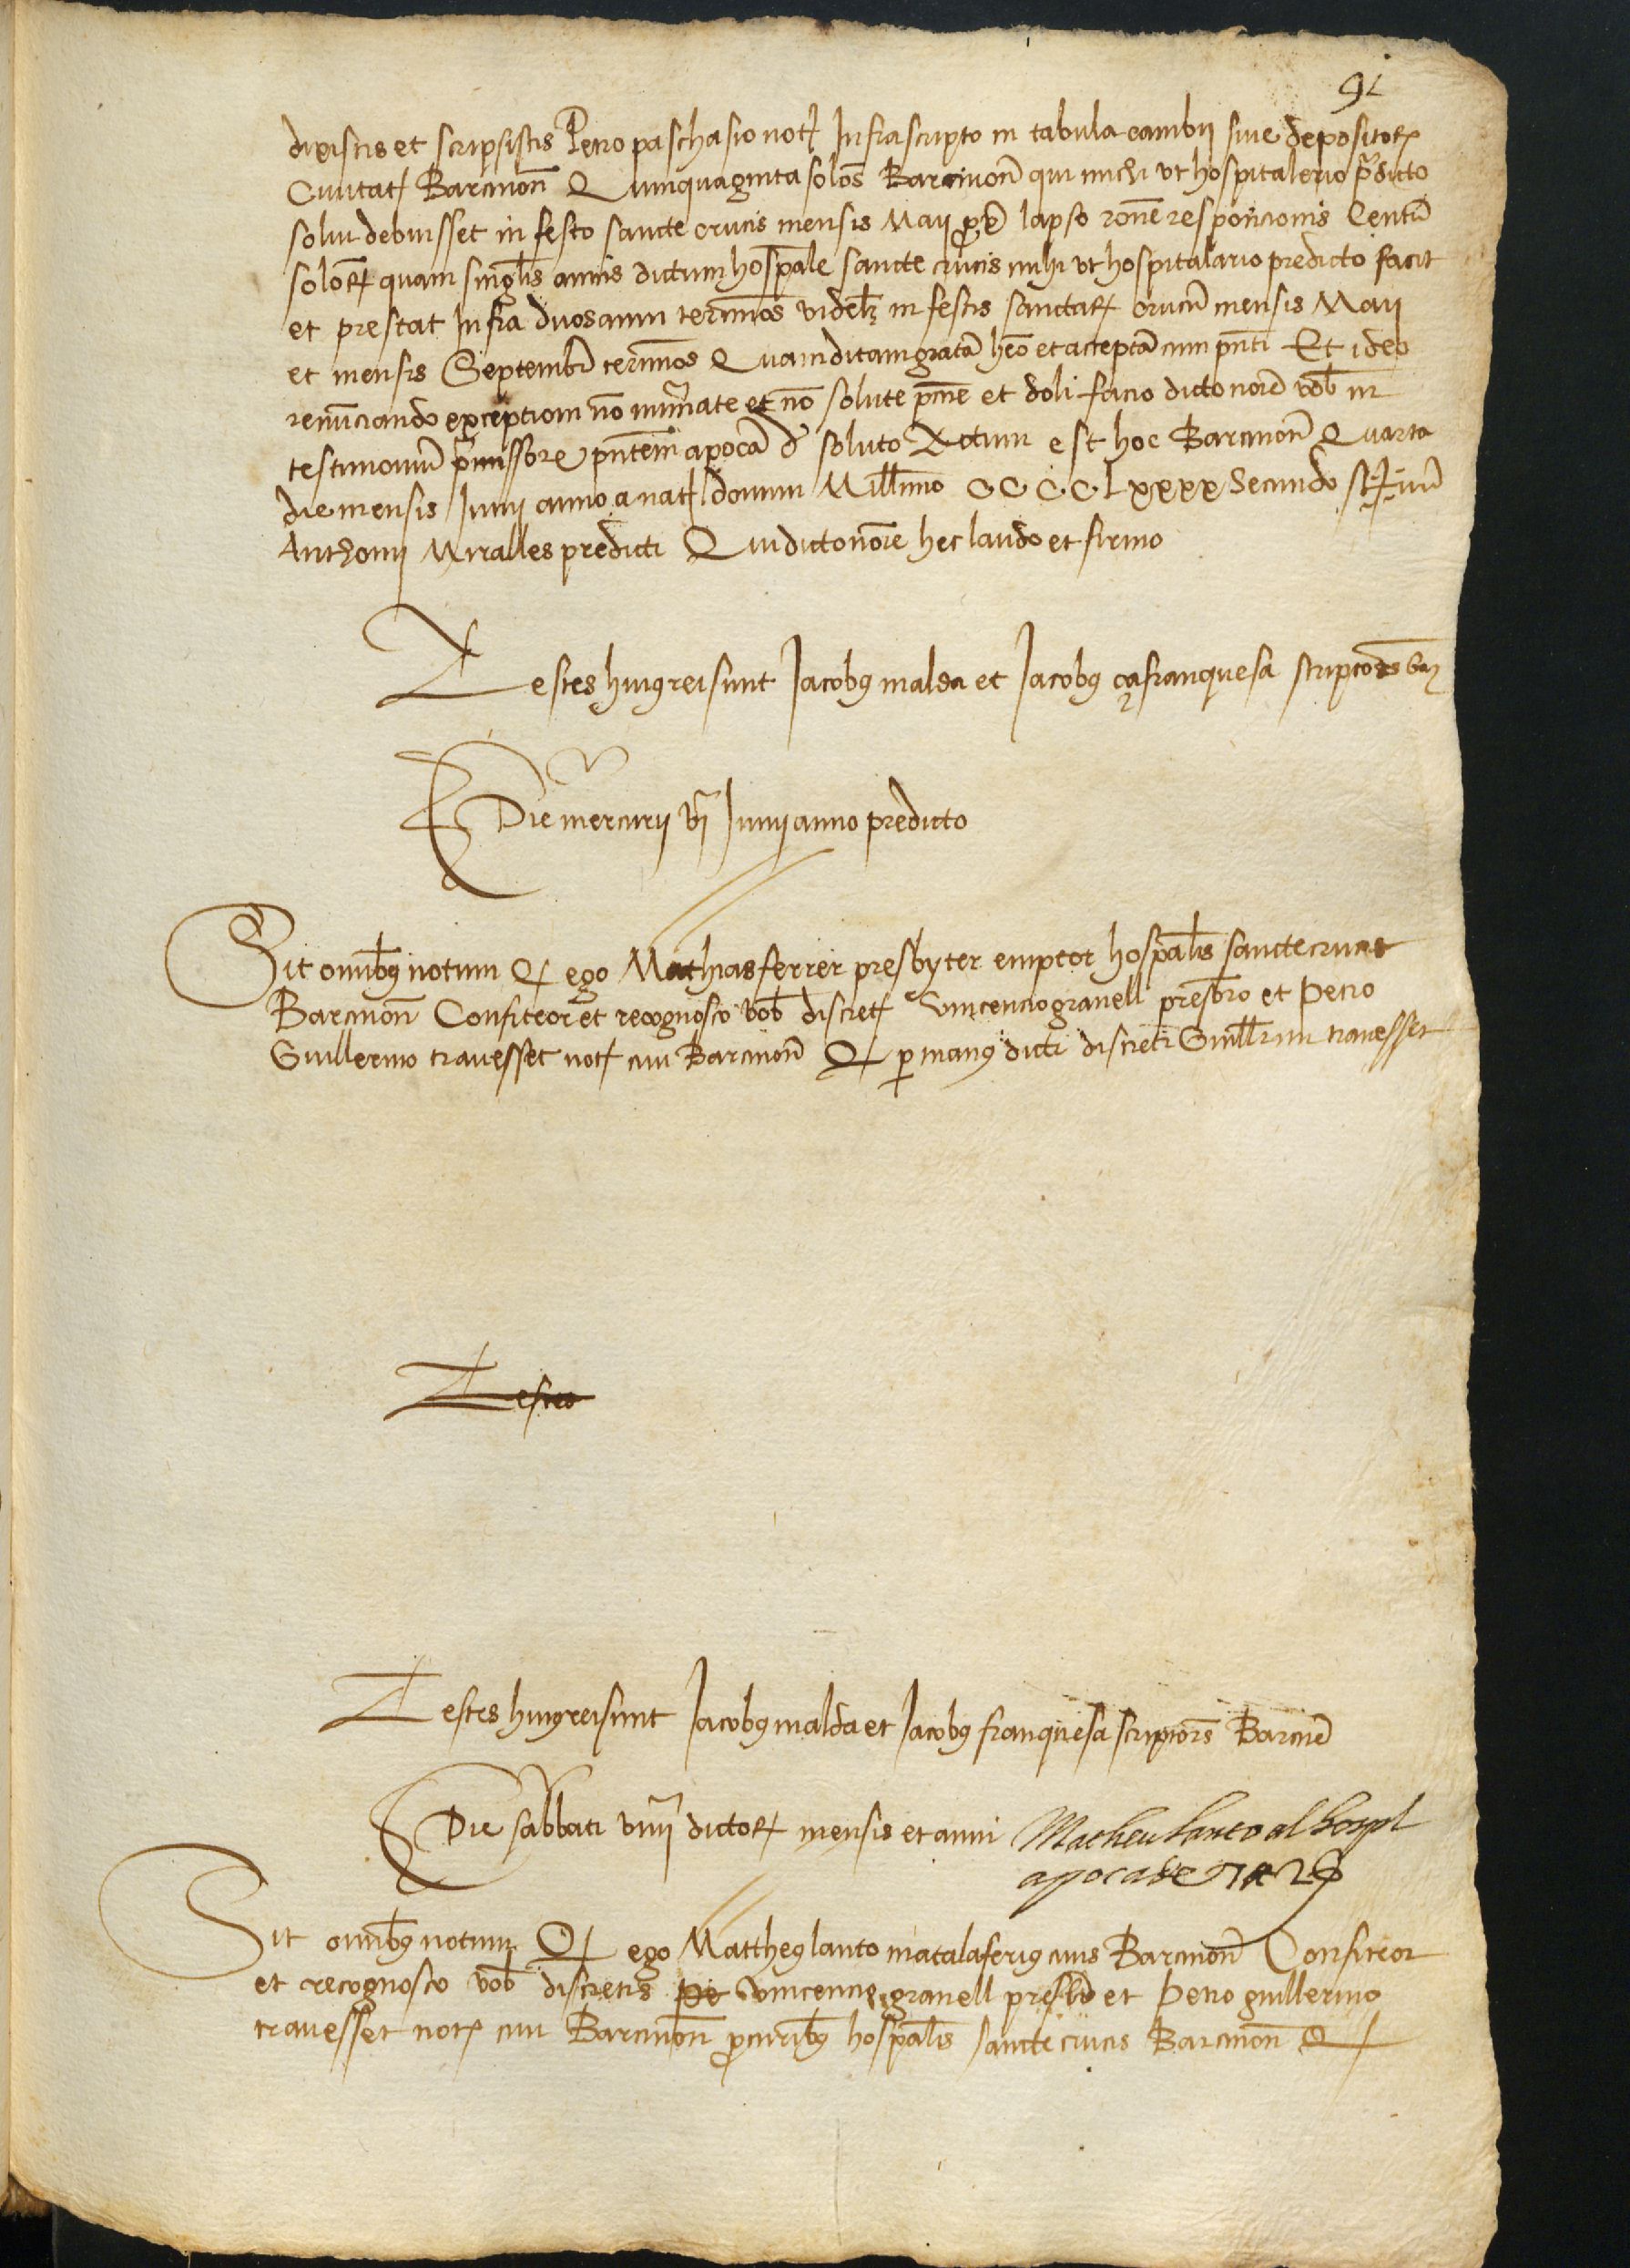 91
dixistis et scripsistis Petro paschasio not Infrascripto in tabula cambij siue depositoꝝ
Ciuitatꝭ Barcinoñ Quinquaginta solos̄ Barcinoñ qui michi vt hospitalerio p̄dicto
solui debuisset in festo sancte crucis mensis Maij lapso roñe responcionis Centū
solōꝝ quam singl̄is annis dictum hosp̄ale sancte crucis mihi vt hospitalario predicto facit
et prestat Infra duos anni terminos videlꝫ in festis sanctaꝝ crucū mensis Maij
et mensis Septembr̄ terminos Quam ditam gratā hēo et acceptā cum pn̄ti Et ideo
renūciando exceptioni nō nūmate et nō solute pccn̄e et doli facio dicto noīe vob̄ in
testimoniū p̄missore pn̄tem apocā d̄ soluto Actum est hoc Barcinoñ Quarta
die mensis Junij anno a natꝭ domini Mill̄imo CCCCLxxxx Secundo
Anthonij Miralles predicti Qui dicto noīe hec laudo et firmo
Testes huiꝰ rei sunt Jacobꝰ malda et Jacobꝰ çafranquesa scriptores bar̄
Die mercurij vj Junij anno predicto
Sit omībꝰ notum Q ego Mathias ferrer presbyter emptor hosp̄alis sancte crucis
Barcinoñ Confiteor et recognosco vob̄ discretꝭ vincencio granell presbr̄o et Petro
Guillermo trauesset notꝭ ciui Barcinoñ Q ꝑ manꝰ dicti discreti Guill̄mi trauesset
Testes
Testes huiꝰ rei sunt Jacobꝰ malda et Jacobꝰ franquesa scriptor̄s Barcin̄
Die sabbati viiij dictoꝝ mensis et anni
Matheu lanto al hospl
apoca de
Sit omībꝰ notum Q ego Mattheꝰ lanto matalaferiꝰ ciuis Barcinoñ Confiteor
et recognosco vob̄ discretis pe vincencio granell presbr̄o et Petro guillermo
trauesset notꝭ ciui Barcinoñ p̄curībꝰ hosp̄alis sancte crucis Barcinoñ Q